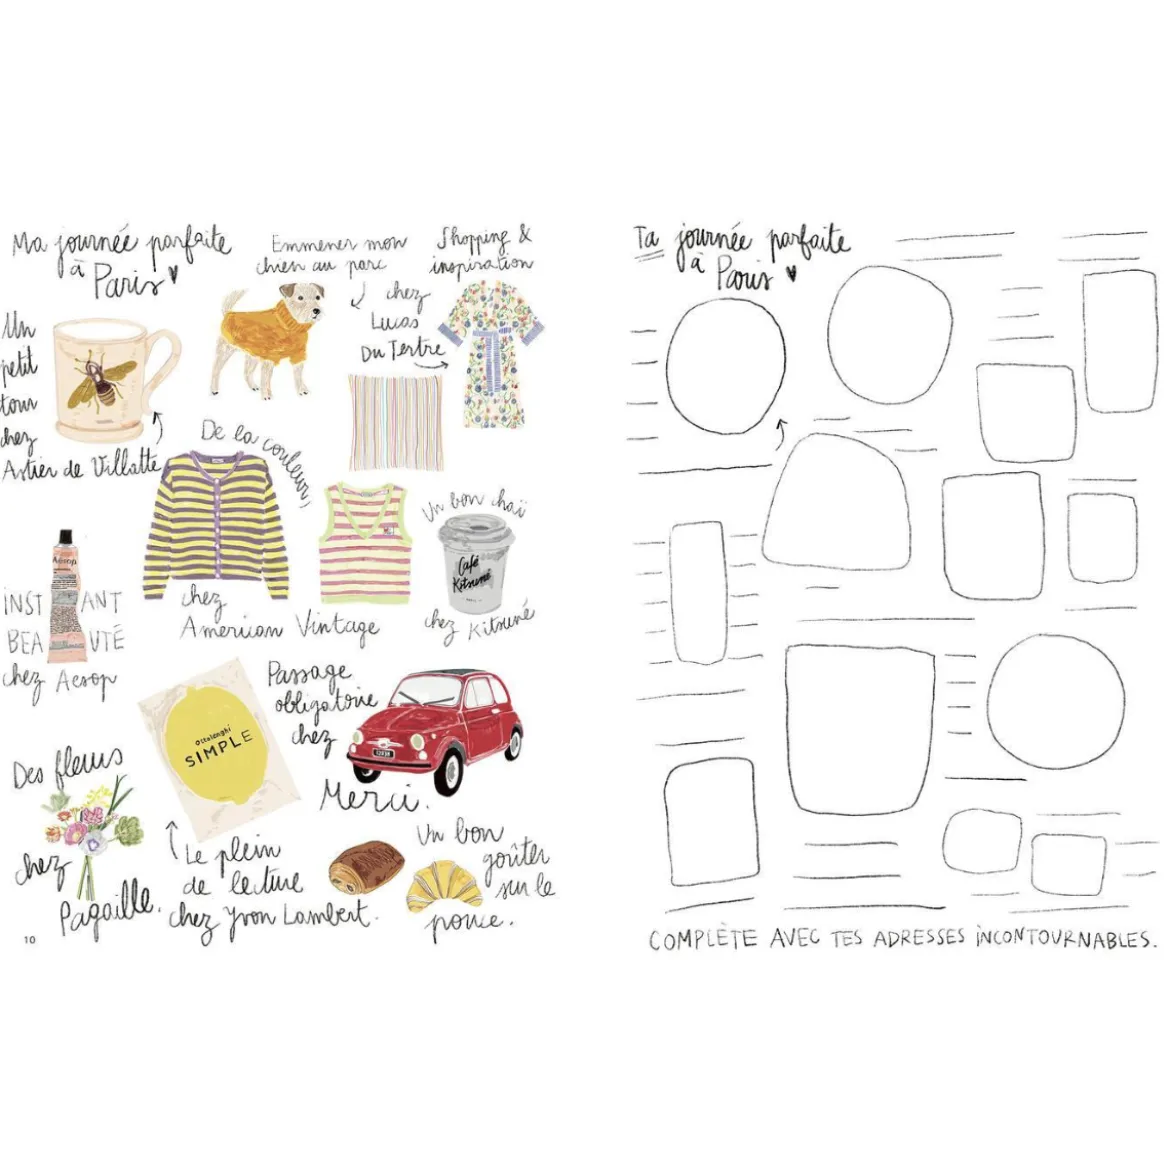 Ma journée parfaite
à Paris
Emmener mon
chien au parc
Shopping &
inspiration
chez
Lucas
Du Tertre
Un
petit
tour
chez
Astier de Villatte
De la couleur,
chez
American Vintage
Un bon chaï
Café
Kitsuné
chez Kitsuné
Aesop
INSTANT
BEAUTÉ
chez Aesop
Ottolenghi
SIMPLE
Passage
obligatoire
chez
Merci.
Des fleurs
chez
Pagaille.
Le plein
de lecture
chez Yvon Lambert.
Un bon
goûter
sur le
pouce.
10
Ta journée parfaite
à Paris
COMPLÈTE AVEC TES ADRESSES INCONTOURNABLES.